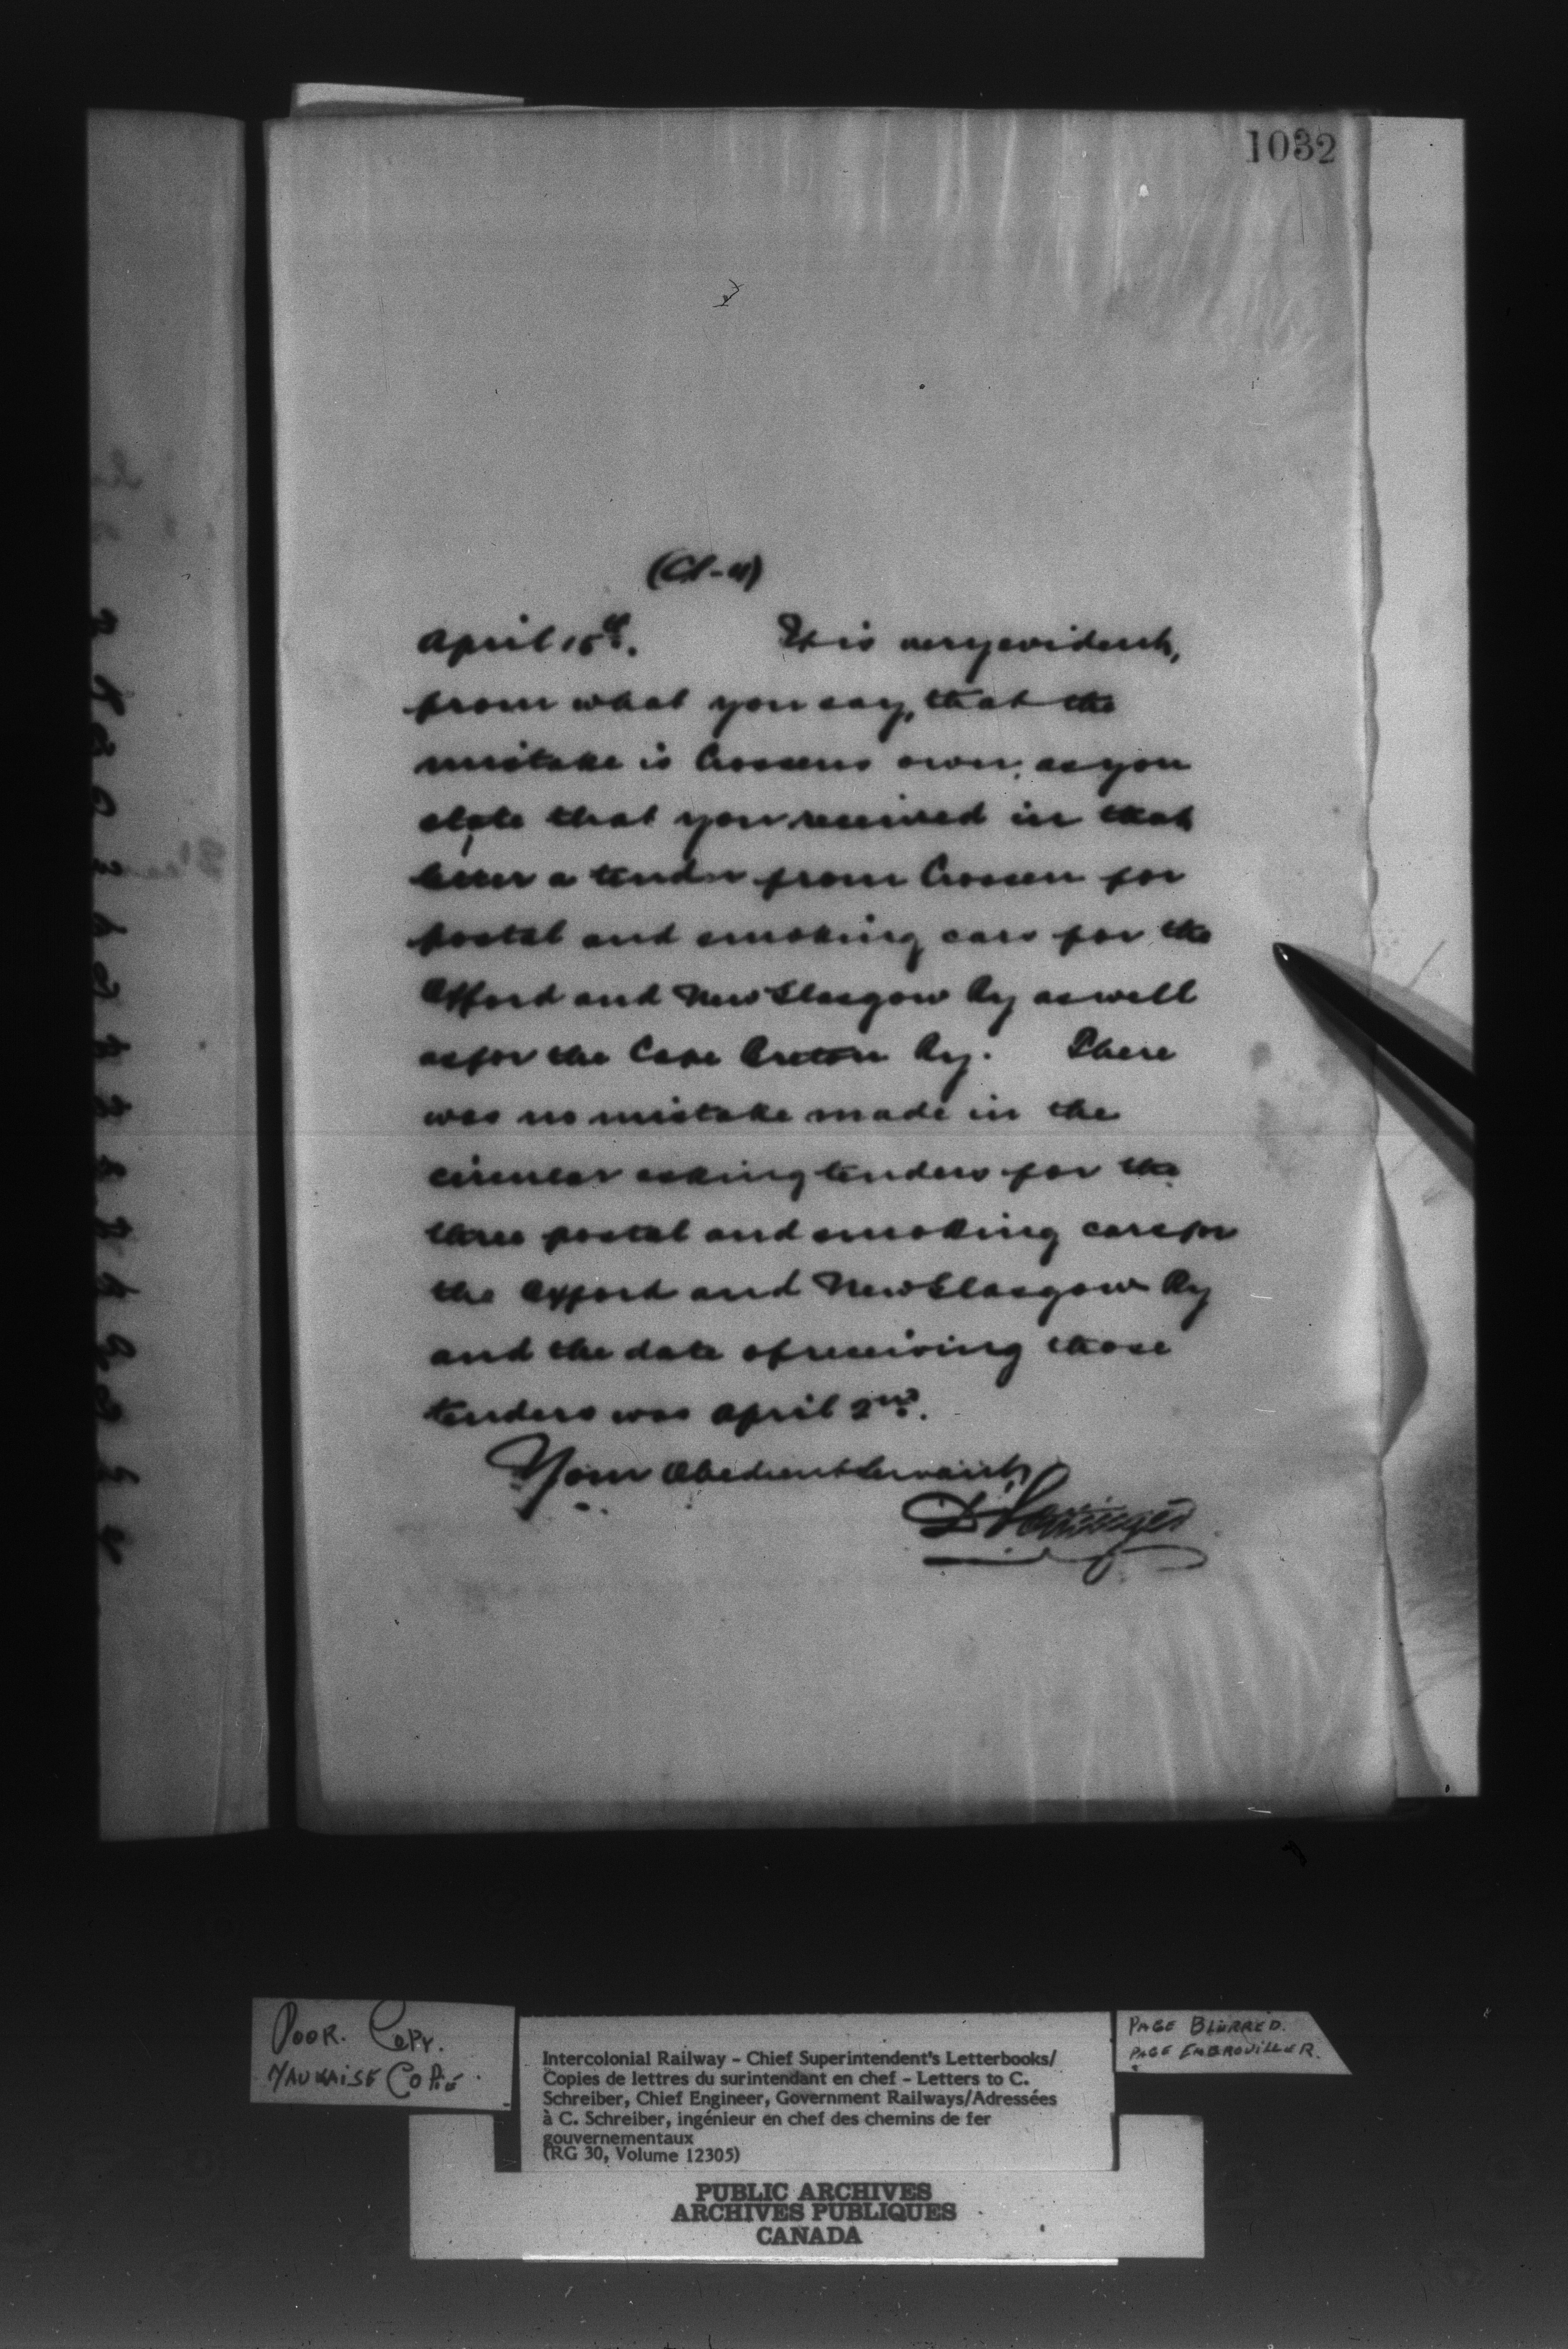 1032
April 15th. It is very evident,
from what you say, that the
mistake is Crossens own, as you
state that you received in that
letter a tender from Crossen for
postal and smoking cars for the
Oxford and New Glasgow Ry as well
as for the Cape Breton Ry. There
was no mistake made in the
circular asking tenders for the
three postal and smoking cars for
the Oxford and New Glasgow Ry
and the date of receiving those
tenders was April 2nd.
Your Obedient Servant,
D Pottinger
POOR. COPY.
MAUVAISE COPIE.
PAGE BLURRED.
PAGE EMBROUILLER.
Intercolonial Railway - Chief Superintendent's Letterbooks/
Copies de lettres du surintendant en chef - Letters to C.
Schreiber, Chief Engineer, Government Railways/Adressées
à C. Schreiber, ingénieur en chef des chemins de fer
gouvernementaux
(RG 30, Volume 12305)
PUBLIC ARCHIVES
ARCHIVES PUBLIQUES
CANADA